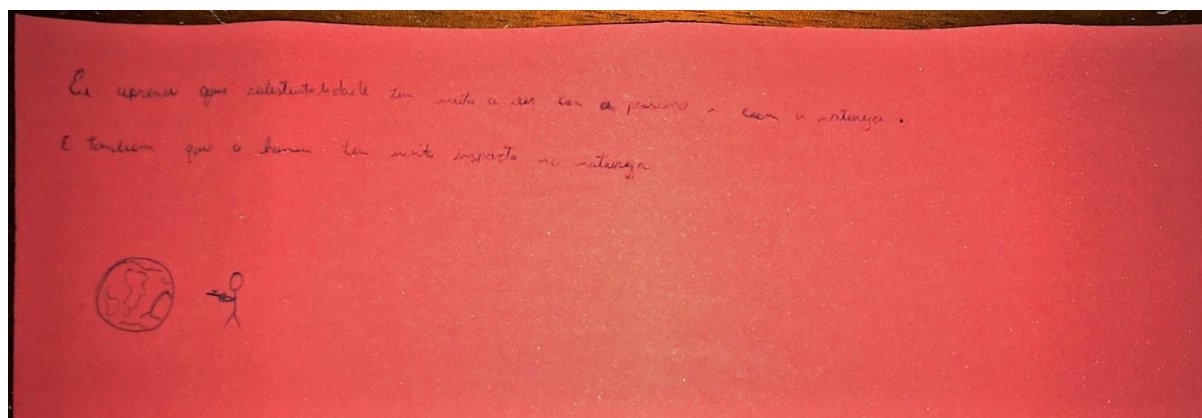 Eu aprendi que sustentabilidade tem muito a ver com o próximo e com a natureza.
E também que o homem tem muito impacto na natureza